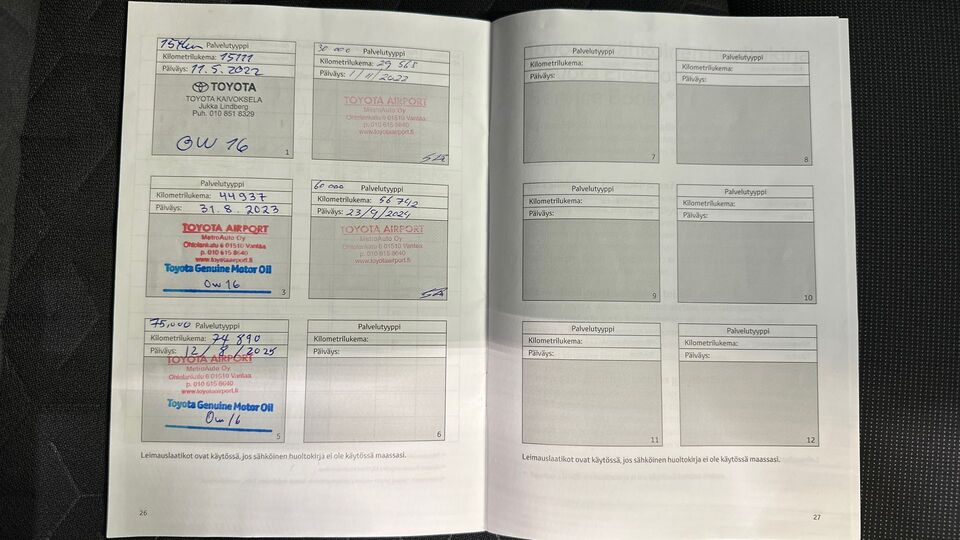 15tkm Palvelutyyppi
Kilometrilukema: 15111
Päiväys: 11.5.2022
TOYOTA
TOYOTA KAIVOKSELA
Jukka Lindberg
Puh. 010 851 8329
OW 16
1
30 000 Palvelutyyppi
Kilometrilukema: 29 568
Päiväys: 1/11/2022
TOYOTA AIRPORT
MetroAuto Oy
Ohtolankatu 6 01510 Vantaa
p. 010 615 8640
www.toyotaairport.fi
Palvelutyyppi
Kilometrilukema: 44937
Päiväys: 31.8.2023
TOYOTA AIRPORT
MetroAuto Oy
Ohtolankatu 6 01510 Vantaa
p. 010 615 8640
www.toyotaairport.fi
Toyota Genuine Motor Oil
Ow 16
3
60 000 Palvelutyyppi
Kilometrilukema: 56 742
Päiväys: 23/9/2024
TOYOTA AIRPORT
MetroAuto Oy
Ohtolankatu 6 01510 Vantaa
p. 010 615 8640
www.toyotaairport.fi
75,000 Palvelutyyppi
Kilometrilukema: 74 890
Päiväys: 12/8/2025
TOYOTA AIRPORT
MetroAuto Oy
Ohtolankatu 6 01510 Vantaa
p. 010 615 8640
www.toyotaairport.fi
Toyota Genuine Motor Oil
Ow 16
5
Palvelutyyppi
Kilometrilukema:
Päiväys:
6
Leimauslaatikot ovat käytössä, jos sähköinen huoltokirja ei ole käytössä maassasi.
26
Palvelutyyppi
Kilometrilukema:
Päiväys:
7
Palvelutyyppi
Kilometrilukema:
Päiväys:
8
Palvelutyyppi
Kilometrilukema:
Päiväys:
9
Palvelutyyppi
Kilometrilukema:
Päiväys:
10
Palvelutyyppi
Kilometrilukema:
Päiväys:
11
Palvelutyyppi
Kilometrilukema:
Päiväys:
12
Leimauslaatikot ovat käytössä, jos sähköinen huoltokirja ei ole käytössä maassasi.
27